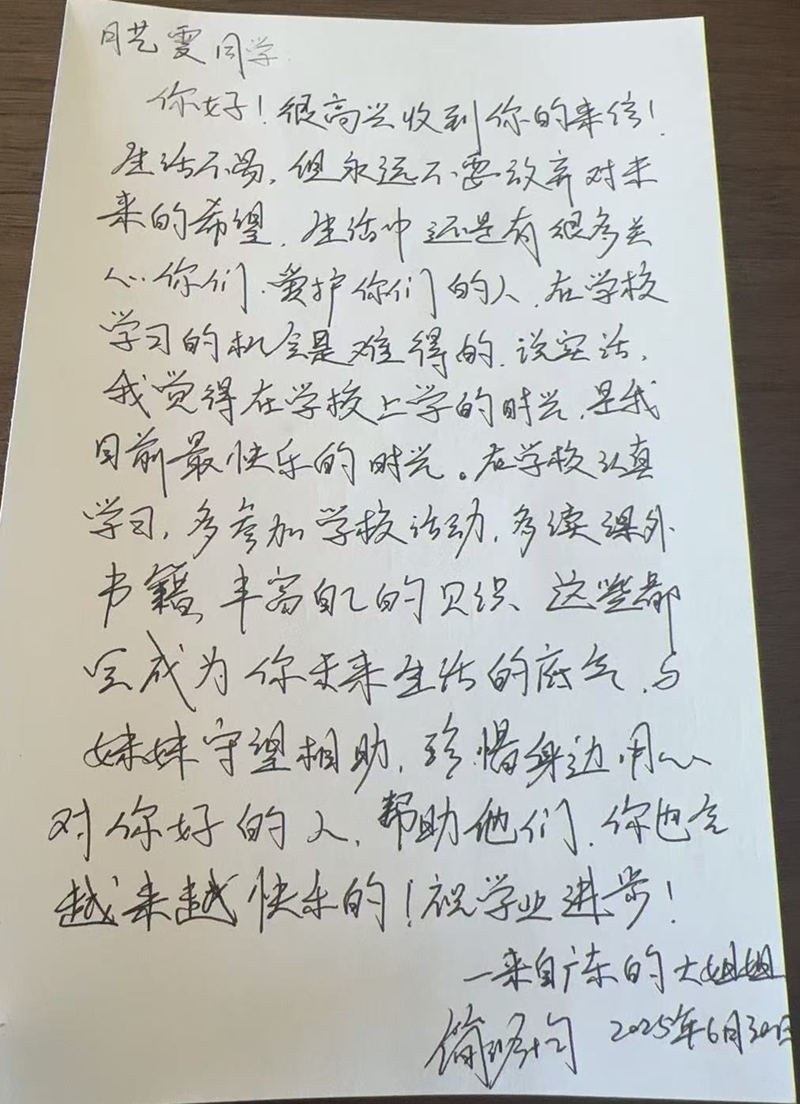 艺雯同学
你好！很高兴收到你的来信！
生活不易，但永远不要放弃对未
来的希望，生活中还是有很多关
心你们、爱护你们的人，在学校
学习的机会是难得的，说实话，
我觉得在学校上学的时光，是我
目前最快乐的时光。在学校认真
学习，多参加学校活动，多读课外
书籍，丰富自己的见识、这些都
会成为你未来生活的底气，与
妹妹守望相助，珍惜身边用心
对你好的人，帮助他们，你也会
越来越快乐的！祝学业进步！
—来自广东的大姐姐
简 2025年6月30日